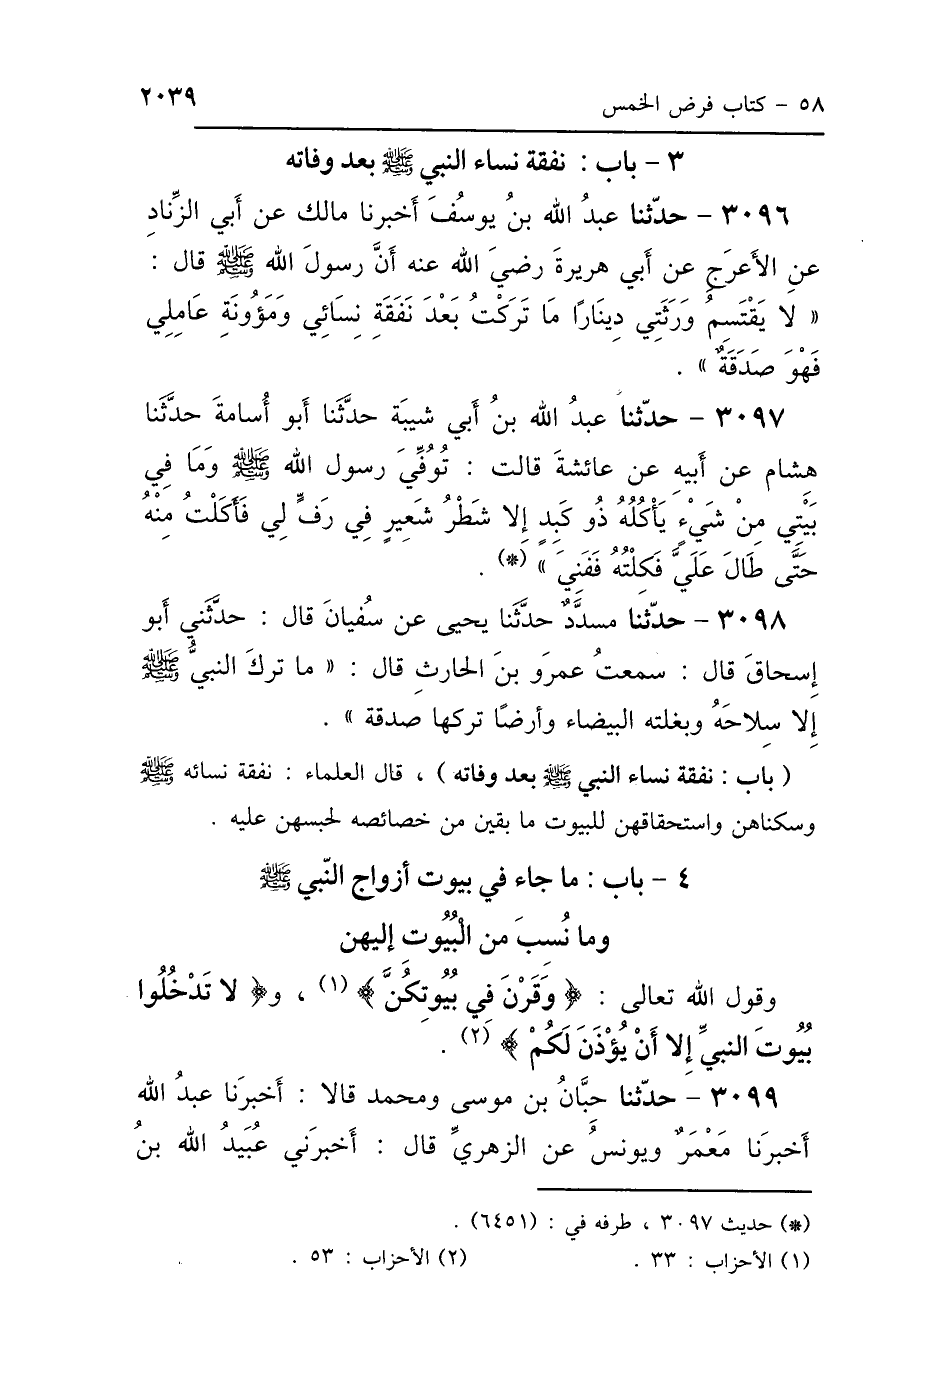 ٥٨ - كتاب فرض الخمس ٢٠٣٩
٣ - باب : نفقة نساء النبي ﷺ بعد وفاته
٣٠٩٦ - حدّثنا عبدُ الله بنُ يوسُفَ أخبرنا مالك عن أبي الزِّنادِ
عنِ الأَعرَجِ عن أبي هريرةَ رضيَ الله عنه أنَّ رسولَ الله ﷺ قال :
« لا يَقْتَسِمُ وَرَثَتِي دِينَارًا مَا تَرَكْتُ بَعْدَ نَفَقَةِ نِسَائِي وَمَؤُونَةِ عَامِلِي
فَهْوَ صَدَقَةٌ » .
٣٠٩٧ - حدّثنا عبدُ الله بنُ أبي شيبَة حدَّثَنا أبو أُسامةَ حدَّثَنا
هشام عن أبيهِ عن عائشةَ قالت : تُوُفِّيَ رسول الله ﷺ وَمَا فِي
بَيْتِي مِنْ شَيْءٍ يَأْكُلُهُ ذُو كَبِدٍ إِلا شَطْرُ شَعِيرٍ فِي رَفٍّ لِي فَأَكَلْتُ مِنْهُ
حَتَّى طَالَ عَلَيَّ فَكِلْتُهُ فَفَنِيَ » (*) .
٣٠٩٨ - حدّثنا مسدَّدٌ حدَّثَنا يحيى عن سُفيانَ قال : حدَّثَني أبو
إسحاقَ قال : سمعتُ عمرَو بنَ الحارثِ قال : « ما تركَ النبيُّ ﷺ
إِلا سِلاحَهُ وبغلته البيضاء وأرضًا تركها صدقة » .
( باب : نفقة نساء النبي ﷺ بعد وفاته ) ، قال العلماء : نفقة نسائه ﷺ
وسكناهن واستحقاقهن للبيوت ما بقين من خصائصه لحبسهن عليه .
٤ - باب : ما جاء في بيوت أزواج النّبي ﷺ
وما نُسِبَ من الْبُيُوت إليهن
وقول الله تعالى : ﴿ وَقَرْنَ فِي بُيُوتِكُنَّ ﴾ (١) ، و﴿ لا تَدْخُلُوا
بُيُوتَ النبيِّ إِلا أَنْ يُؤْذَنَ لَكُمْ ﴾ (٢) .
٣٠٩٩ - حدّثنا حِبَّانُ بن موسى ومحمد قالا : أخبرَنا عبدُ الله
أخبرَنا مَعْمَرٌ ويونسُ عن الزهريِّ قال : أخبرَني عُبَيدُ الله بنُ
(*) حديث ٣٠٩٧ ، طرفه في : (٦٤٥١) .
(١) الأحزاب : ٣٣ . (٢) الأحزاب : ٥٣ .